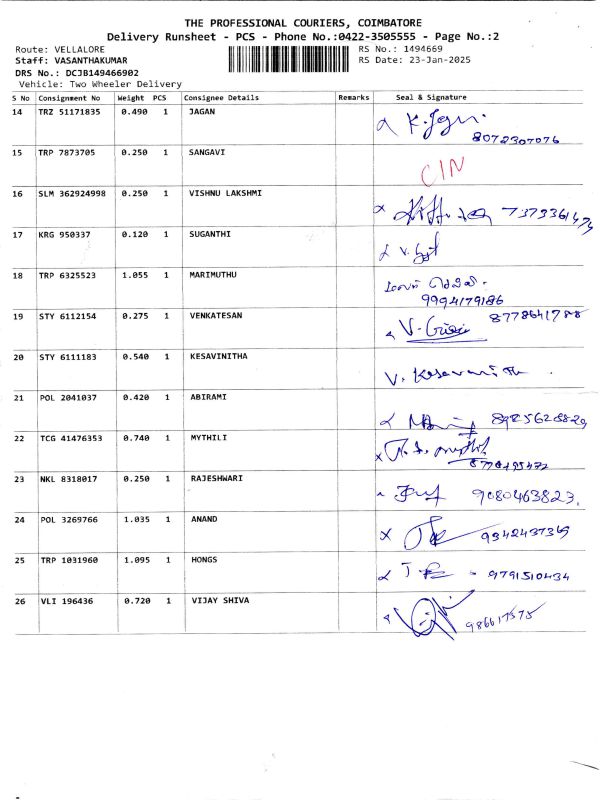 THE PROFESSIONAL COURIERS, COIMBATORE
Delivery Runsheet - PCS - Phone No.:0422-3505555 - Page No.:2
Route: VELLALORE RS No.: 1494669
Staff: VASANTHAKUMAR RS Date: 23-Jan-2025
DRS No.: DCJB149466902
Vehicle: Two Wheeler Delivery
S No Consignment No Weight PCS Consignee Details Remarks Seal & Signature
14 TRZ 51171835 0.490 1 JAGAN
8072307076
15 TRP 7873705 0.250 1 SANGAVI
CIN
16 SLM 362924998 0.250 1 VISHNU LAKSHMI
17 KRG 950337 0.120 1 SUGANTHI
18 TRP 6325523 1.055 1 MARIMUTHU
9994179186
19 STY 6112154 0.275 1 VENKATESAN
20 STY 6111183 0.540 1 KESAVINITHA
21 POL 2041037 0.420 1 ABIRAMI
22 TCG 41476353 0.740 1 MYTHILI
23 NKL 8318017 0.250 1 RAJESHWARI
9080463823
24 POL 3269766 1.035 1 ANAND
9342437369
25 TRP 1031960 1.095 1 HONGS
9791510434
26 VLI 196436 0.720 1 VIJAY SHIVA